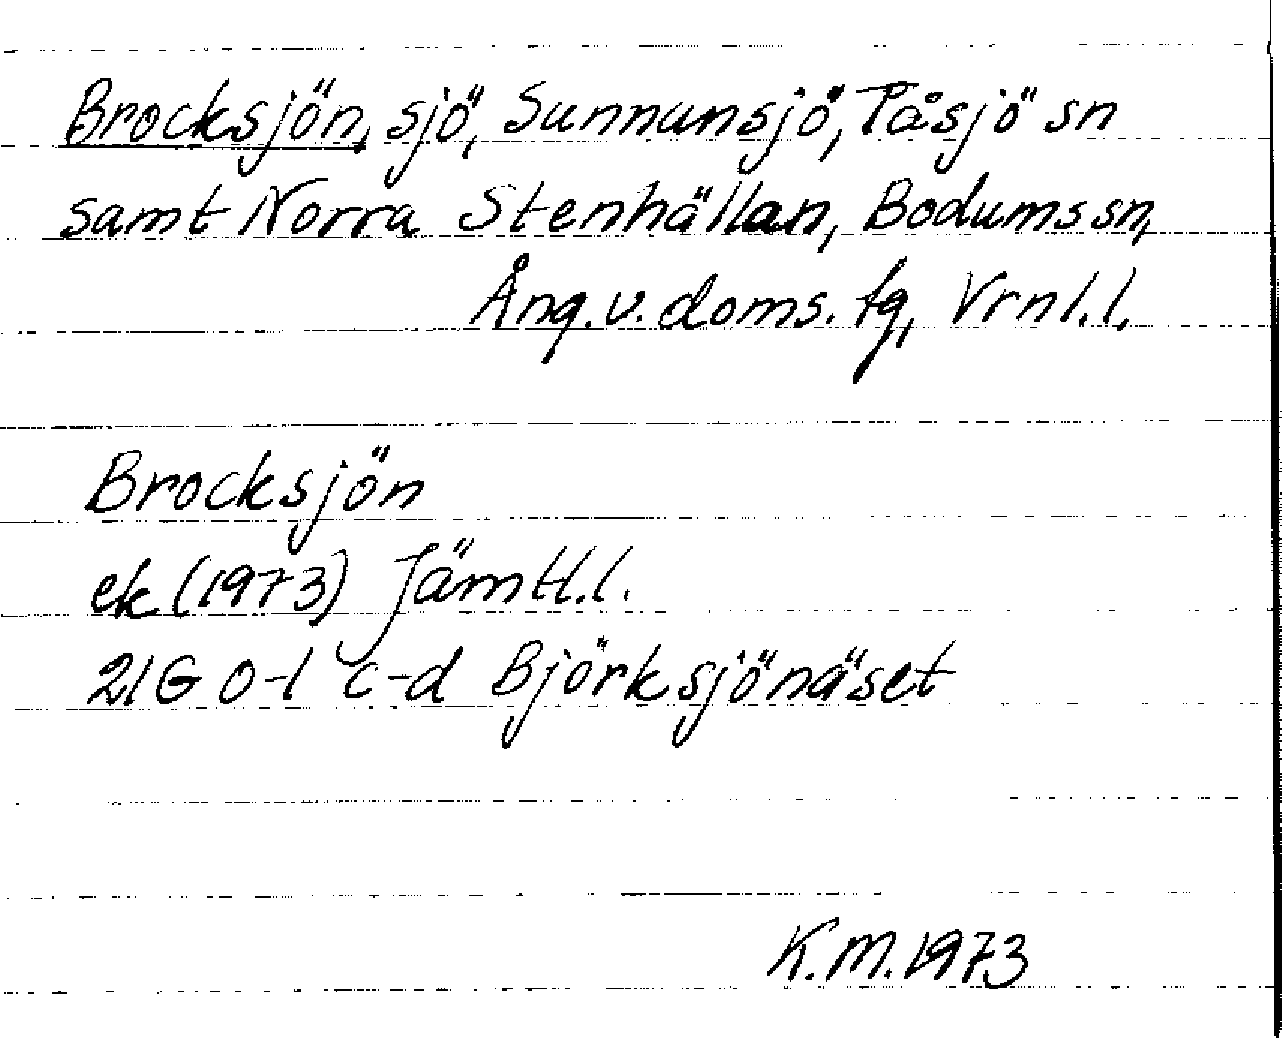 Brocksjön, sjö, Sunnansjö, Tåsjö sn
samt Norra Stenhällan, Bodums sn,
Ång. v. doms. tg, Vrnl. l.
Brocksjön
ek (1973) Jämtl. l.
21G 0-1 c-d Björksjönäset
K.M. 1973